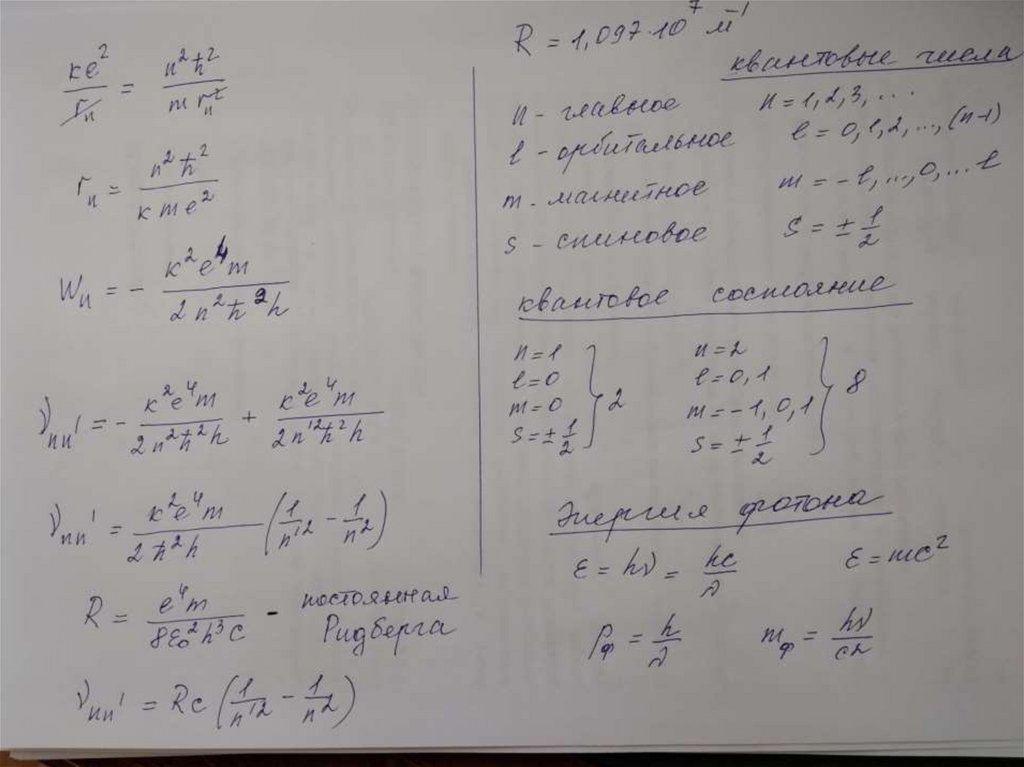 ke²/rₙ = n²ħ²/m rₙ²
rₙ = n²ħ²/k m e²
Wₙ = - k²e⁴m/2n²ħ²h
νₙₙ' = - k²e⁴m/2n²ħ²h + k²e⁴m/2n'²ħ²h
νₙₙ' = k²e⁴m/2ħ²h (1/n'² - 1/n²)
R = e⁴m/8ε₀²h³c - постоянная
Ридберга
νₙₙ' = Rc (1/n'² - 1/n²)
R = 1,097·10⁷ м⁻¹
квантовые числа
n - главное n = 1, 2, 3, ...
l - орбитальное l = 0, 1, 2, ..., (n-1)
m - магнитное m = -l, ..., 0, ... l
s - спиновое s = ± 1/2
квантовое состояние
n=1 n=2
l=0 l=0,1
m=0 } 2 m=-1, 0, 1 } 8
s=± 1/2 s=± 1/2
Энергия фотона
ε = hν = hc/λ ε = mc²
p_ф = h/λ m_ф = hν/c²